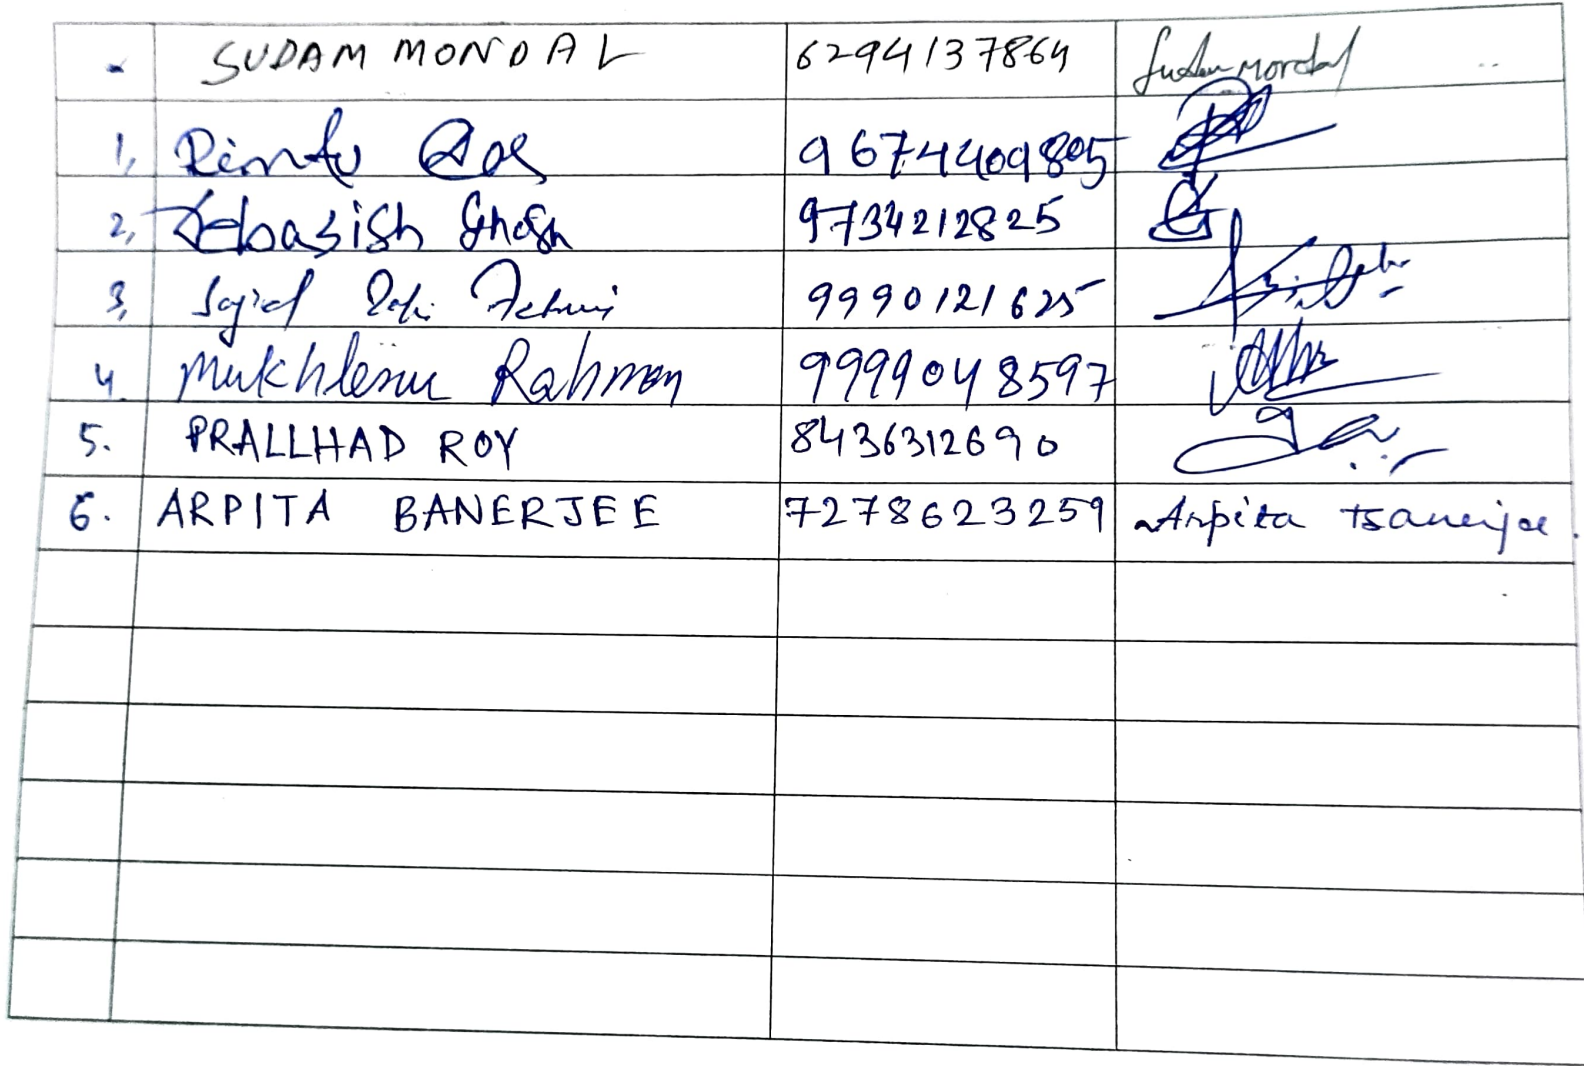 SUDAM MONDAL 6294137864 Sudam Mondal
1, Rintu Das 9674409805
2, Debasish Ghosh 9734212825
3, Sajid 9990121625
4. Mukhlesur Rahman 9999048597
5. PRALLHAD ROY 8436312690
6. ARPITA BANERJEE 7278623259 Arpita Banerjee